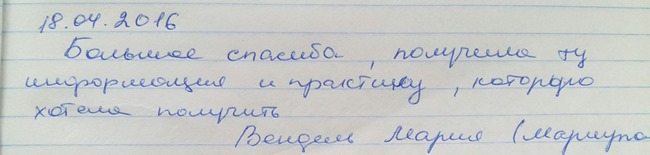 18.04.2016
Большое спасибо, получила ту
информацию и практику, которую
хотела получить
Вендель Мария (Мариупо